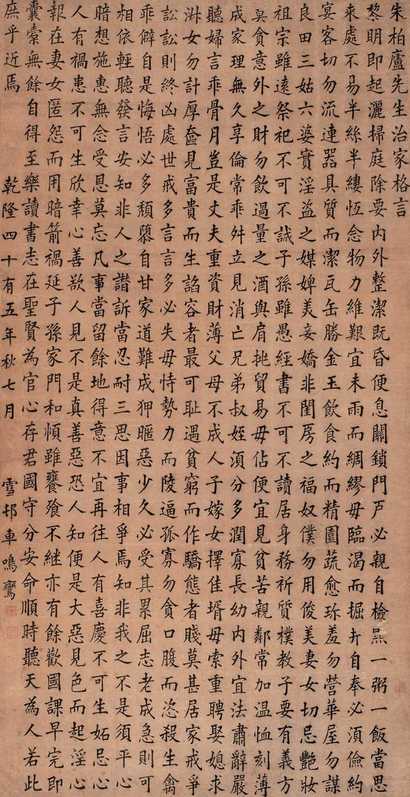 朱柏廬先生治家格言
黎明即起灑掃庭除要內外整潔既昏便息關鎖門戶必親自檢點一粥一飯當思
來處不易半絲半縷恆念物力維艱宜未雨而綢繆毋臨渴而掘井自奉必須儉約
宴客切勿流連器具質而潔瓦缶勝金玉飲食約而精園蔬愈珍羞勿營華屋勿謀
良田三姑六婆實淫盜之媒婢美妾嬌非閨房之福奴僕勿用俊美妻女切忌艷妝
祖宗雖遠祭祀不可不誠子孫雖愚經書不可不讀居身務祈質樸教子要有義方
莫貪意外之財勿飲過量之酒與肩挑貿易毋佔便宜見貧苦親鄰常加溫恤刻薄
成家理無久享倫常乖舛立見消亡兄弟叔姪須分多潤寡長幼內外宜法肅辭嚴
聽婦言乖骨月豈是丈夫重資財薄父母不成人子嫁女擇佳壻毋索重聘娶媳求
淑女勿計厚奩見富貴而生諂容者最可恥遇貧窮而作驕態者賤莫甚居家戒爭
訟訟則終凶處世戒多言言多必失毋恃勢力而陵逼孤寡勿貪口腹而恣殺生禽
乖僻自是悔悟必多頹慕自甘家道難成狎暱惡少久必受其累屈志老成急則可
相依輕聽發言安知非人之譖訴當忍耐三思因事相爭焉知非我之不是須平心
暗想施惠無念受恩莫忘凡事當留餘地得意不宜再往人有喜慶不可生妒忌心
人有禍患不可生欣幸心善欲人見不是真善惡恐人知便是大惡見色而起淫心
報在妻女匿怨而用暗箭禍延子孫家門和順雖饔飧不繼亦有餘歡國課早完即
囊橐無餘自得至樂讀書志在聖賢為官心存君國守分安命順時聽天為人若此
庶乎近焉 乾隆四十有五年秋七月 雪邨車鳴鸞